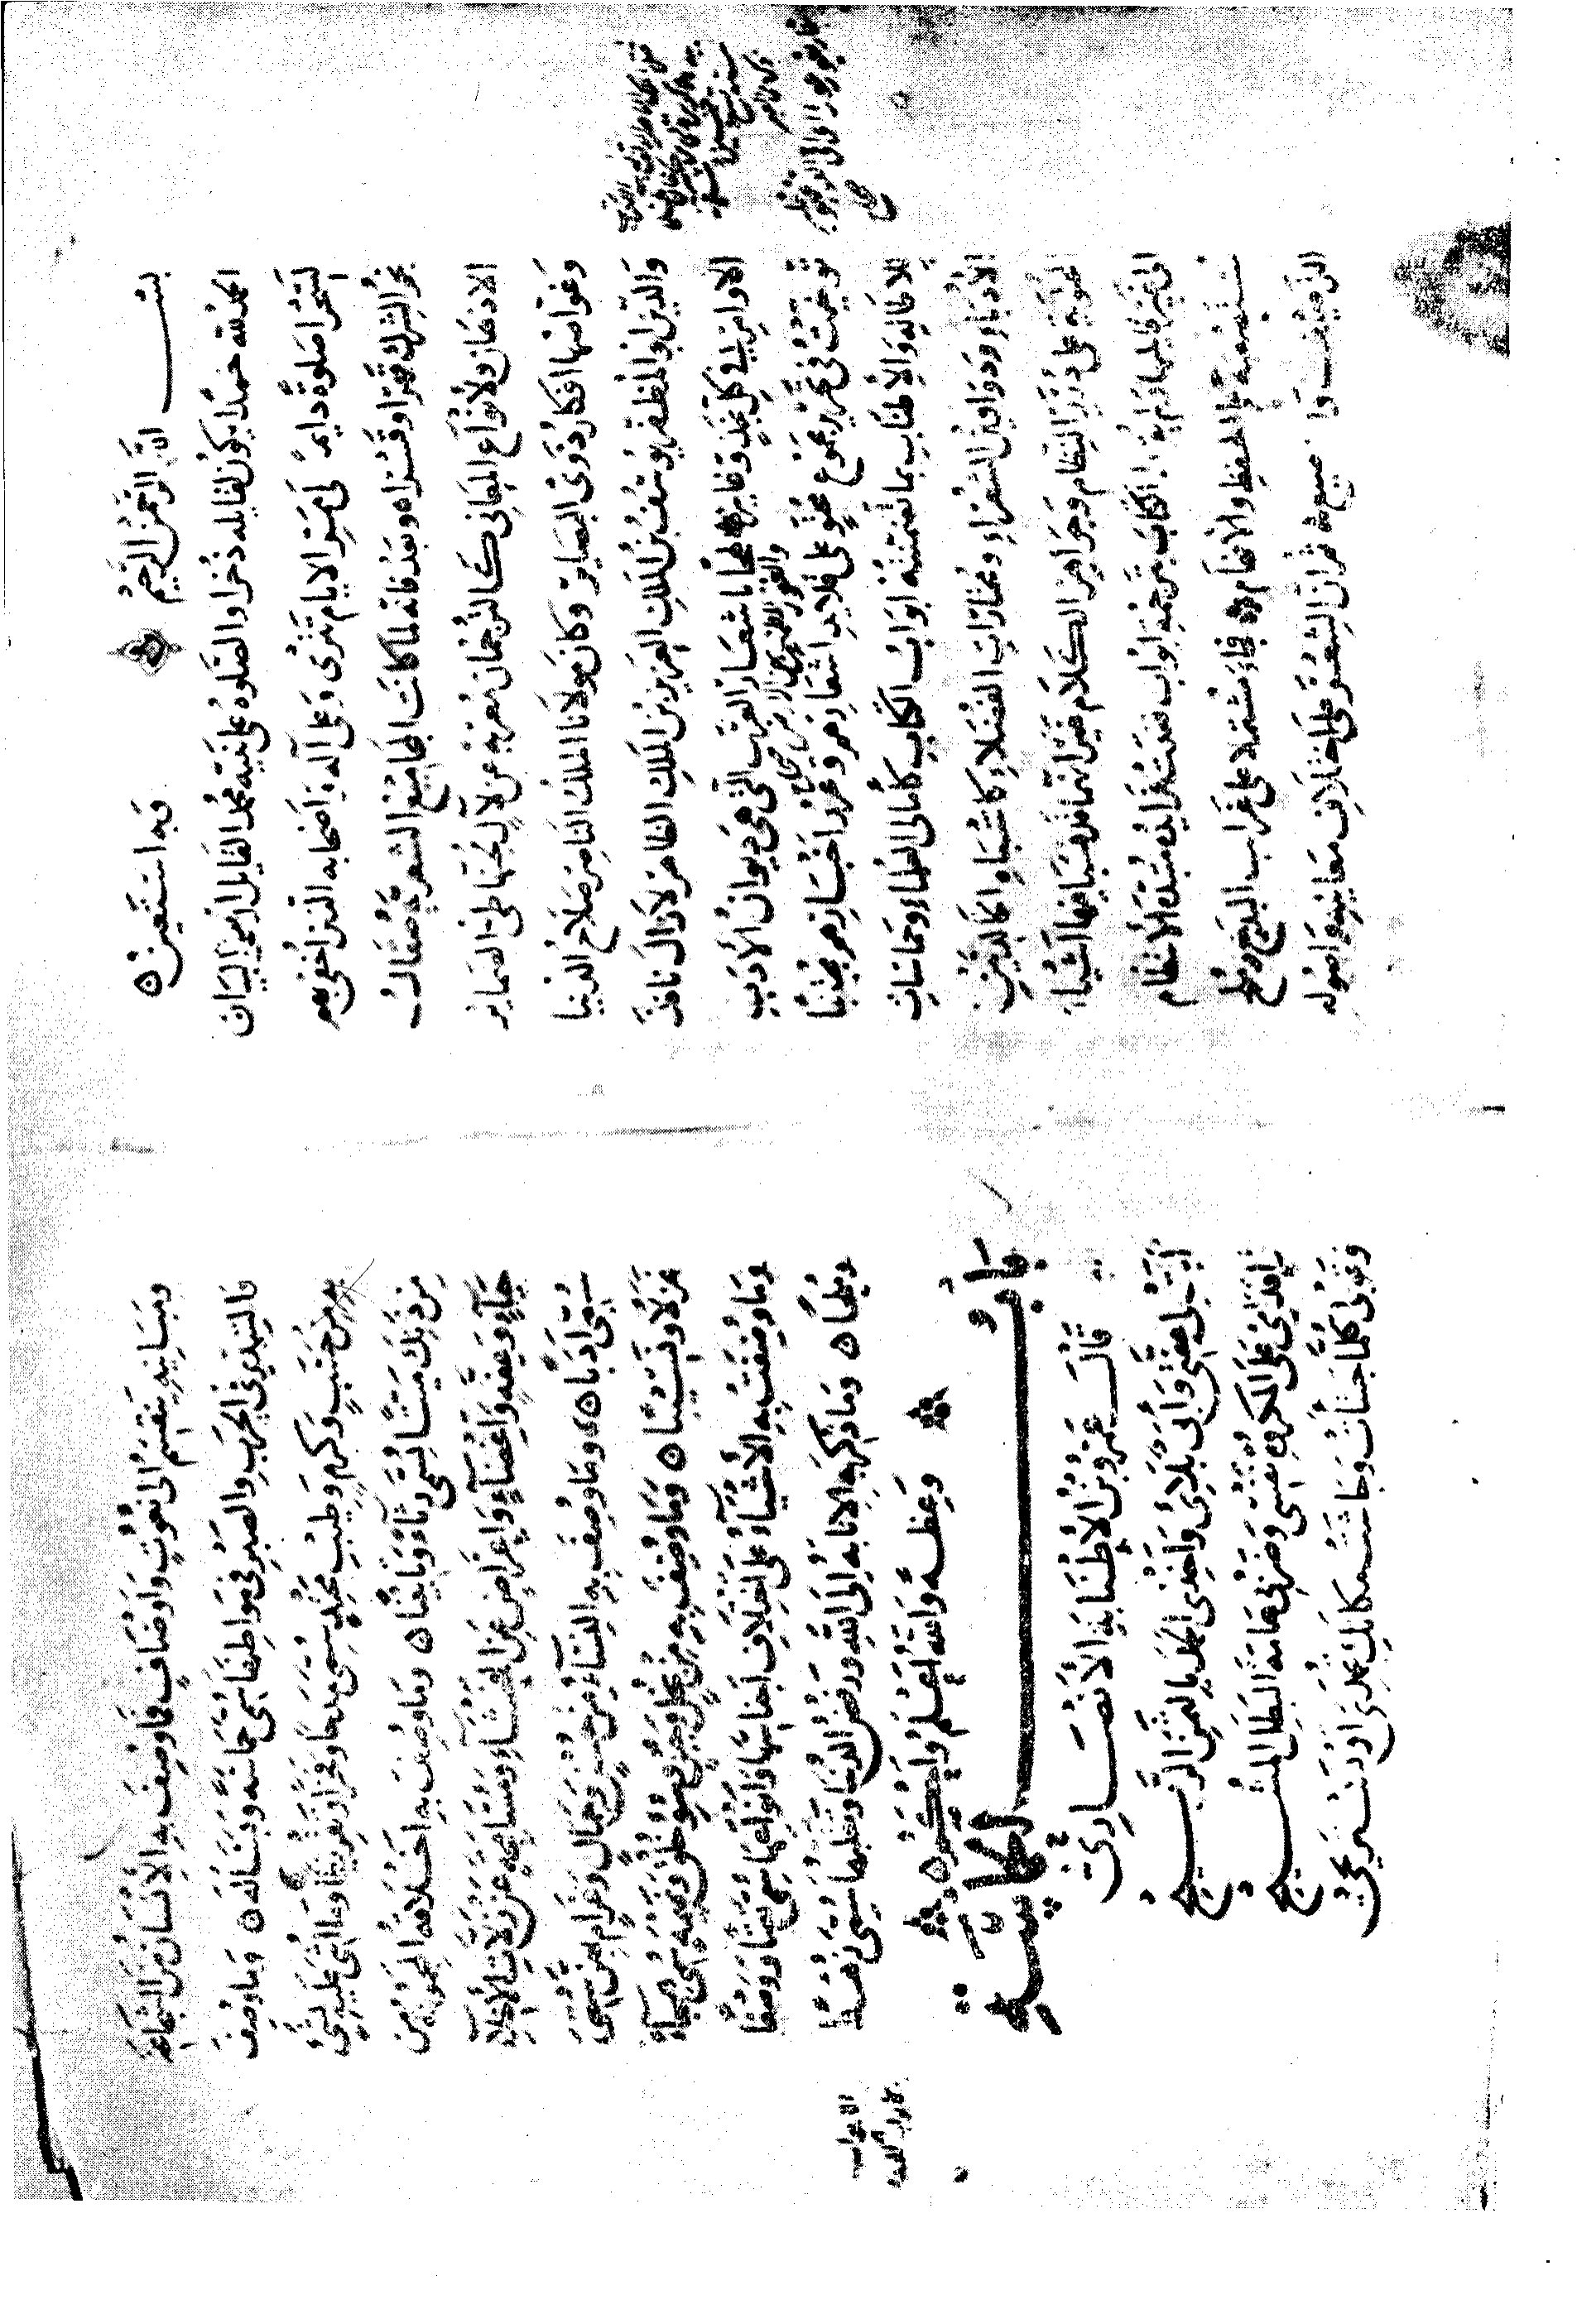 بسم الله الرحمن الرحيم وبه استعين
الحمد لله حمدا يكون لقايله ذخرا والصلوة على نبيه محمد القايل ان من البيان
لسحرا صلوة دايمة على ممر الايام تترى وعلى آله واصحابه الذين اخفى بهم
بحر الشرك قهرا وقسرا ه وبعد فانه لما كانت المجاميع الشعرية صقال
الاذهان ولانواع المعاني كالترجمان معربة عن لآل لجتها طي الضماير
وغواصها افكار ذوى البصاير وكان مولانا الملك الناصر صلاح الدنيا
والدين ابو المظفر يوسف بن الملك العزيز بن الملك الظاهر لازال نافذ
الاوامر في كل نجد وغاير لهجا باشعار العرب التي هي ديوان الادب
توخيت في تحرير مجموع محتو على قلايد اشعارهم وغرر اخبارهم مجتنبا
للاطالة والاطناب بما تضمنته ابواب الكتاب كامالى العلماء وحماسات
الأدباء ودواوين الشعراء ومختارات الفضلاء كاشباه الخالديين
المحتوية على درر النظام وجواهر الكلام غير انهما لم يسبا فيها اشياء
الى غير قايلها ولم يبوبا الكتاب ترجمة ابواب فغدت فرايده متبددة الانتظام
مستصعبة على الحفظ والافهام فجاء مشتملا على غرايب البديع وملح
الترصيع ثم ان الشعر على اختلاف معانيه واصوله
ومبانيه ينقسم الى نعوت واوصاف فما وصف به الانسان من الشجاعة
والشدة في الحرب والصبر في مواطنها سمى حماسة وبسالة ه وما وصف
به من حسب وكرم وطيب محتد سمى مدحا وفخرا وتقريظا وما اثنى عليه بشئ
من ذلك ميتا سمى رثاء وتابينا ه وما وصف به اخلاقه المحمودة من
حياء وعفة واغضاء واعراض عن الفحشاء ومسامحة عن زلات الاخلاء
سمى ادبا ه وما وصف به النساء من حسن وجمال وغرام بهن سمى
غزلا ونسيبا ه وما وصف به من بخل وجبن وسوء خلق ونميمة سمى هجاء
وما وصفت به الاشياء على اختلاف اجناسها وانواعها سمى نعتا ووصفا
وملحا ه وما ذكر به الانابة الى الله ورفض الدنيا وتقلبها سمى زهدا
وعظة والله اعلم واحكم ه
باب الحماسة
قال عمرو بن الاطنابة الانصارى
ابت لى عفتى وابى بلائى واخذى الحمد بالثمن الربيح
واقدامى على المكروه نفسى وضربى هامة البطل المشيح
وقولى كلما جشأت وجاشت مكانك تحمدى او تستريحى